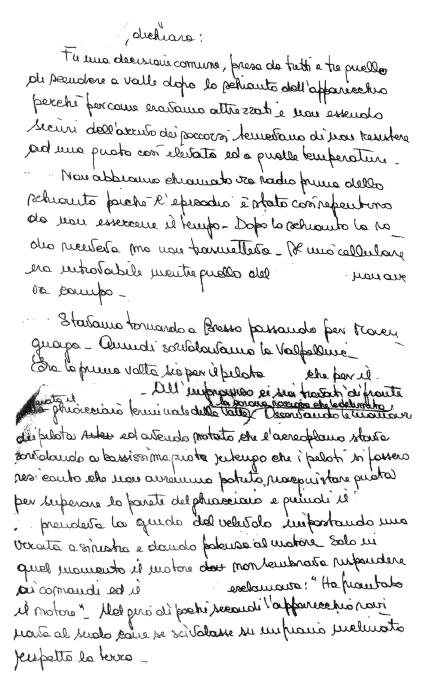 , dichiara:
Fu una decisione comune, presa da tutti e tre quella
di scendere a valle dopo lo schianto dell'apparecchio
perchè per come eravamo attrezzati e non essendo
sicuri dell'arrivo dei soccorsi, temevamo di non resistere
ad una quota così elevata ed a quelle temperature -
Non abbiamo chiamato via radio prima dello
schianto poichè l'episodio è stato così repentino
da non esserene il tempo - Dopo lo schianto la ra
dio riceveva ma non trasmetteva - Il mio cellulare
era introvabile mentre quello del non ave
va campo -
Stavamo tornando a Bresso passando per
- Quindi sorvolavamo la
Era la prima volta sia per il pilota che per il
- All'improvviso ci siam trovati di fronte
la parete rocciosa che lo delimitava
ghiacciaio terminale della Valle. Osservando le manovre
di pilota ed avendo notato che l'aeroplano stava
sorvolando a bassissima quota ritengo che i piloti si fossero
resi conto che non avremmo potuto riacquistare quota
per superare la parete del ghiacciaio e quindi il
prendeva la guida del velivolo impostando una
virata a sinistra e dando potenza al motore. Solo in
quel momento il motore non sembrava rispondere
ai comandi ed il esclamava: "Ha piantato
il motore" - Nel giro di pochi secondi l'apparecchio rovi
nava al suolo come se scivolasse su un piano inclinato
rispetto la terra -